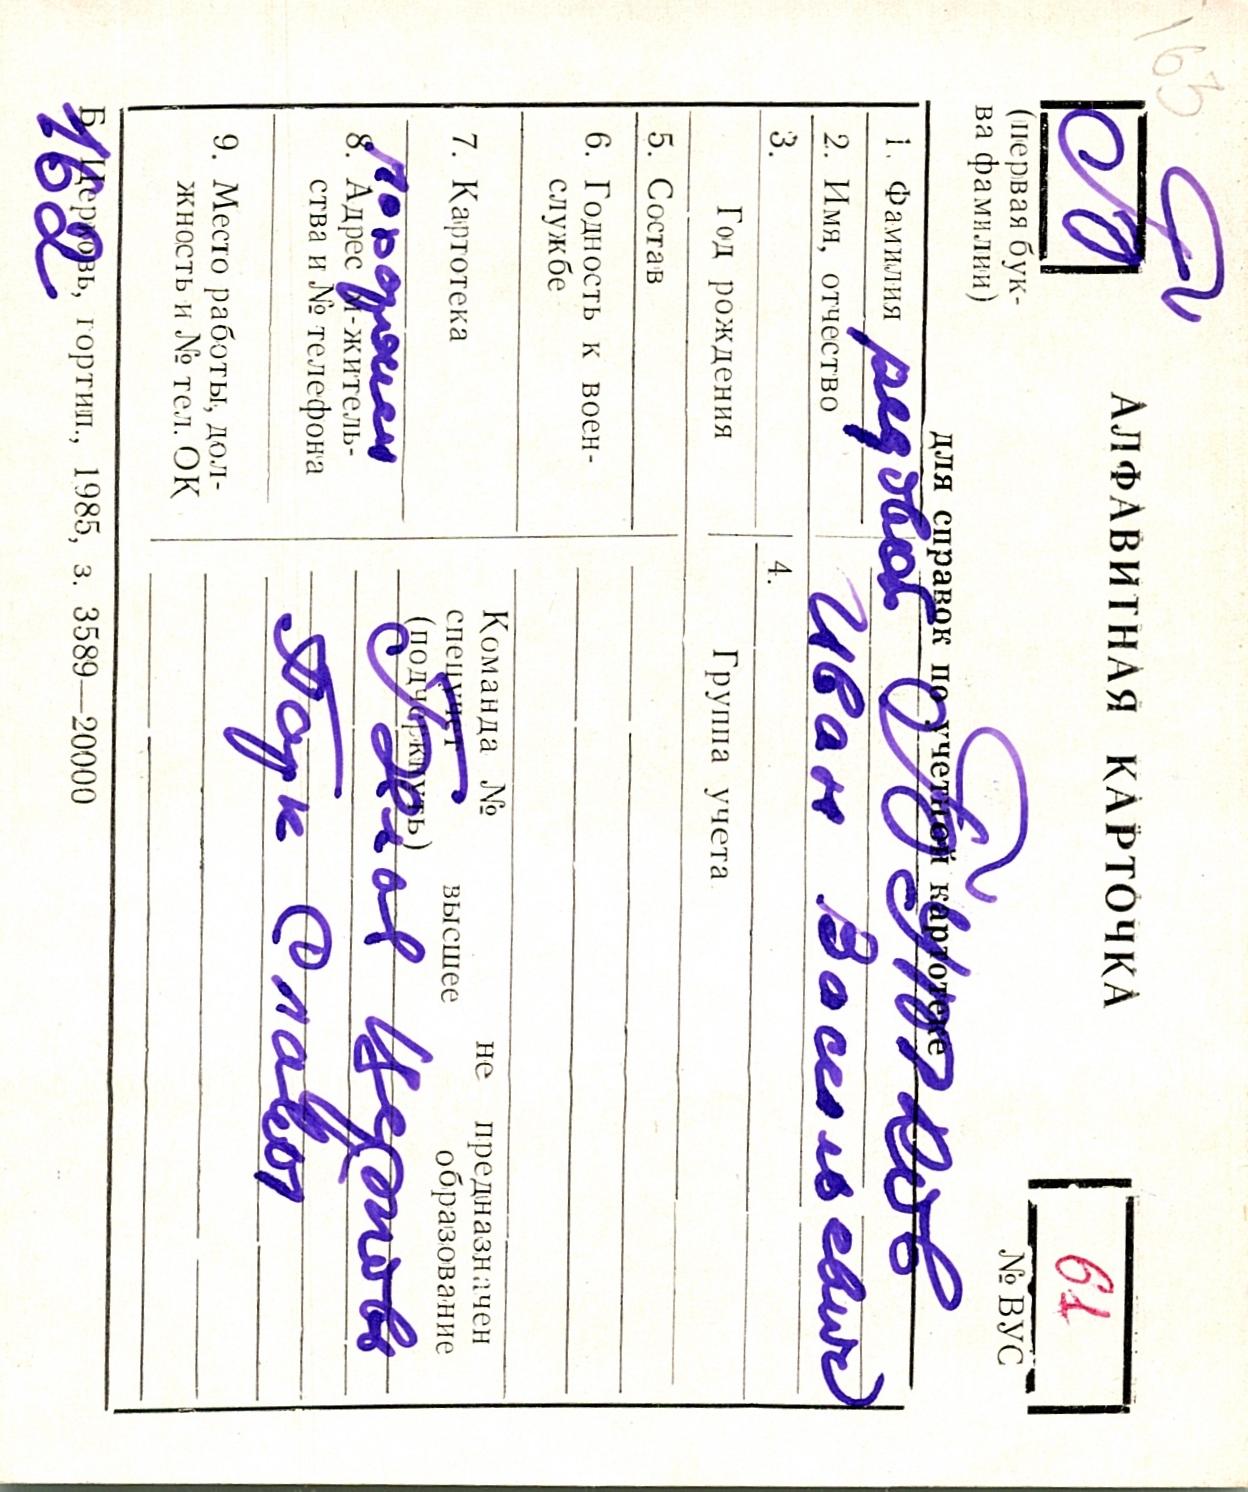 163
АЛФАВИТНАЯ КАРТОЧКА
61
(первая бук-
ва фамилии)
№ ВУС
для справок по учетной картотеке
1. Фамилия
2. Имя, отчество Иван Васильевич
3.
4.
Год рождения
Группа учета
5. Состав
6. Годность к воен-
службе
7. Картотека
Команда № не предназначен
спецучет высшее образование
(подчеркнуть)
8. Адрес м-житель-
ства и № телефона
9. Место работы, дол-
жность и № тел. ОК
Парк Славы
Б. Церковь, гортип., 1985, з. 3589—20000
162